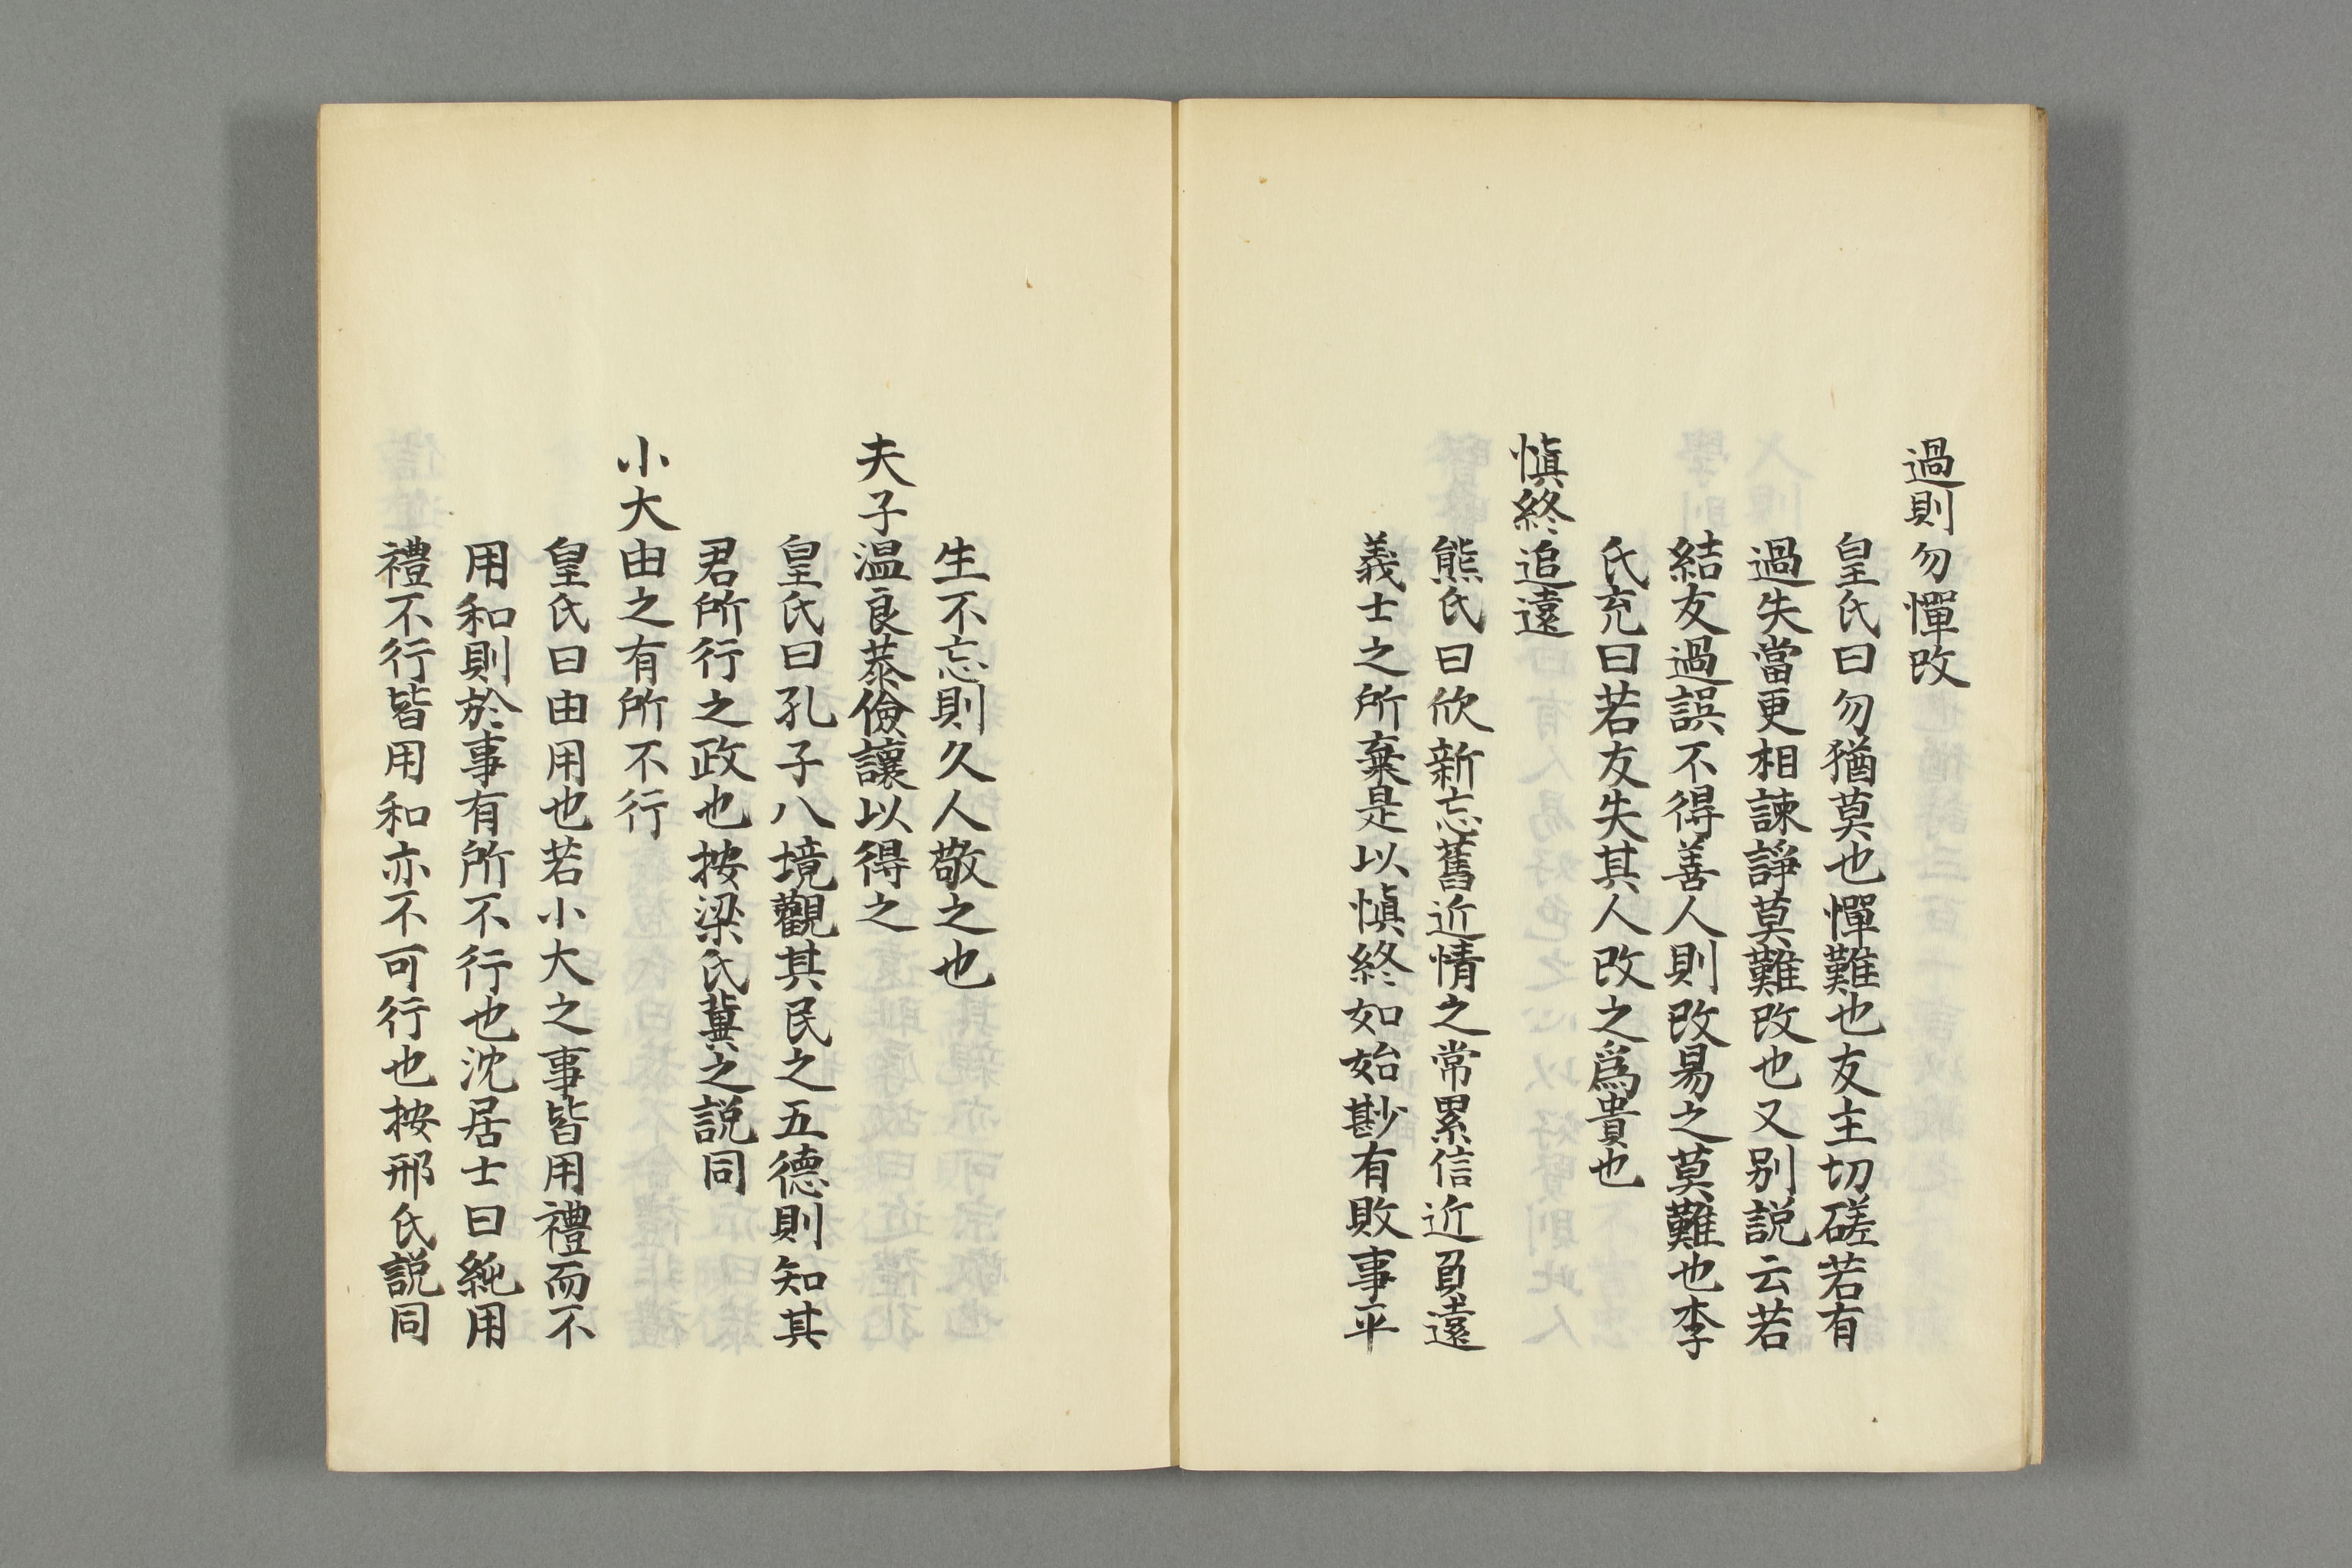 過則勿憚改
皇氏曰勿猶莫也憚難也友主切磋若有
過失當更相諫諍莫難改也又别説云若
結友過誤不得善人則改易之莫難也李
氏充曰若友失其人改之爲貴也
愼終追遠
熊氏曰欣新忘舊近情之常累信近負遠
義士之所棄是以愼終如始尠有敗事平
生不忘則久人敬之也
夫子温良恭儉讓以得之
皇氏曰孔子八境觀其民之五德則知其
君所行之政也按梁氏冀之説同
小大由之有所不行
皇氏曰由用也若小大之事皆用禮而不
用和則於事有所不行也沈居士曰純用
禮不行皆用和亦不可行也按邢氏説同